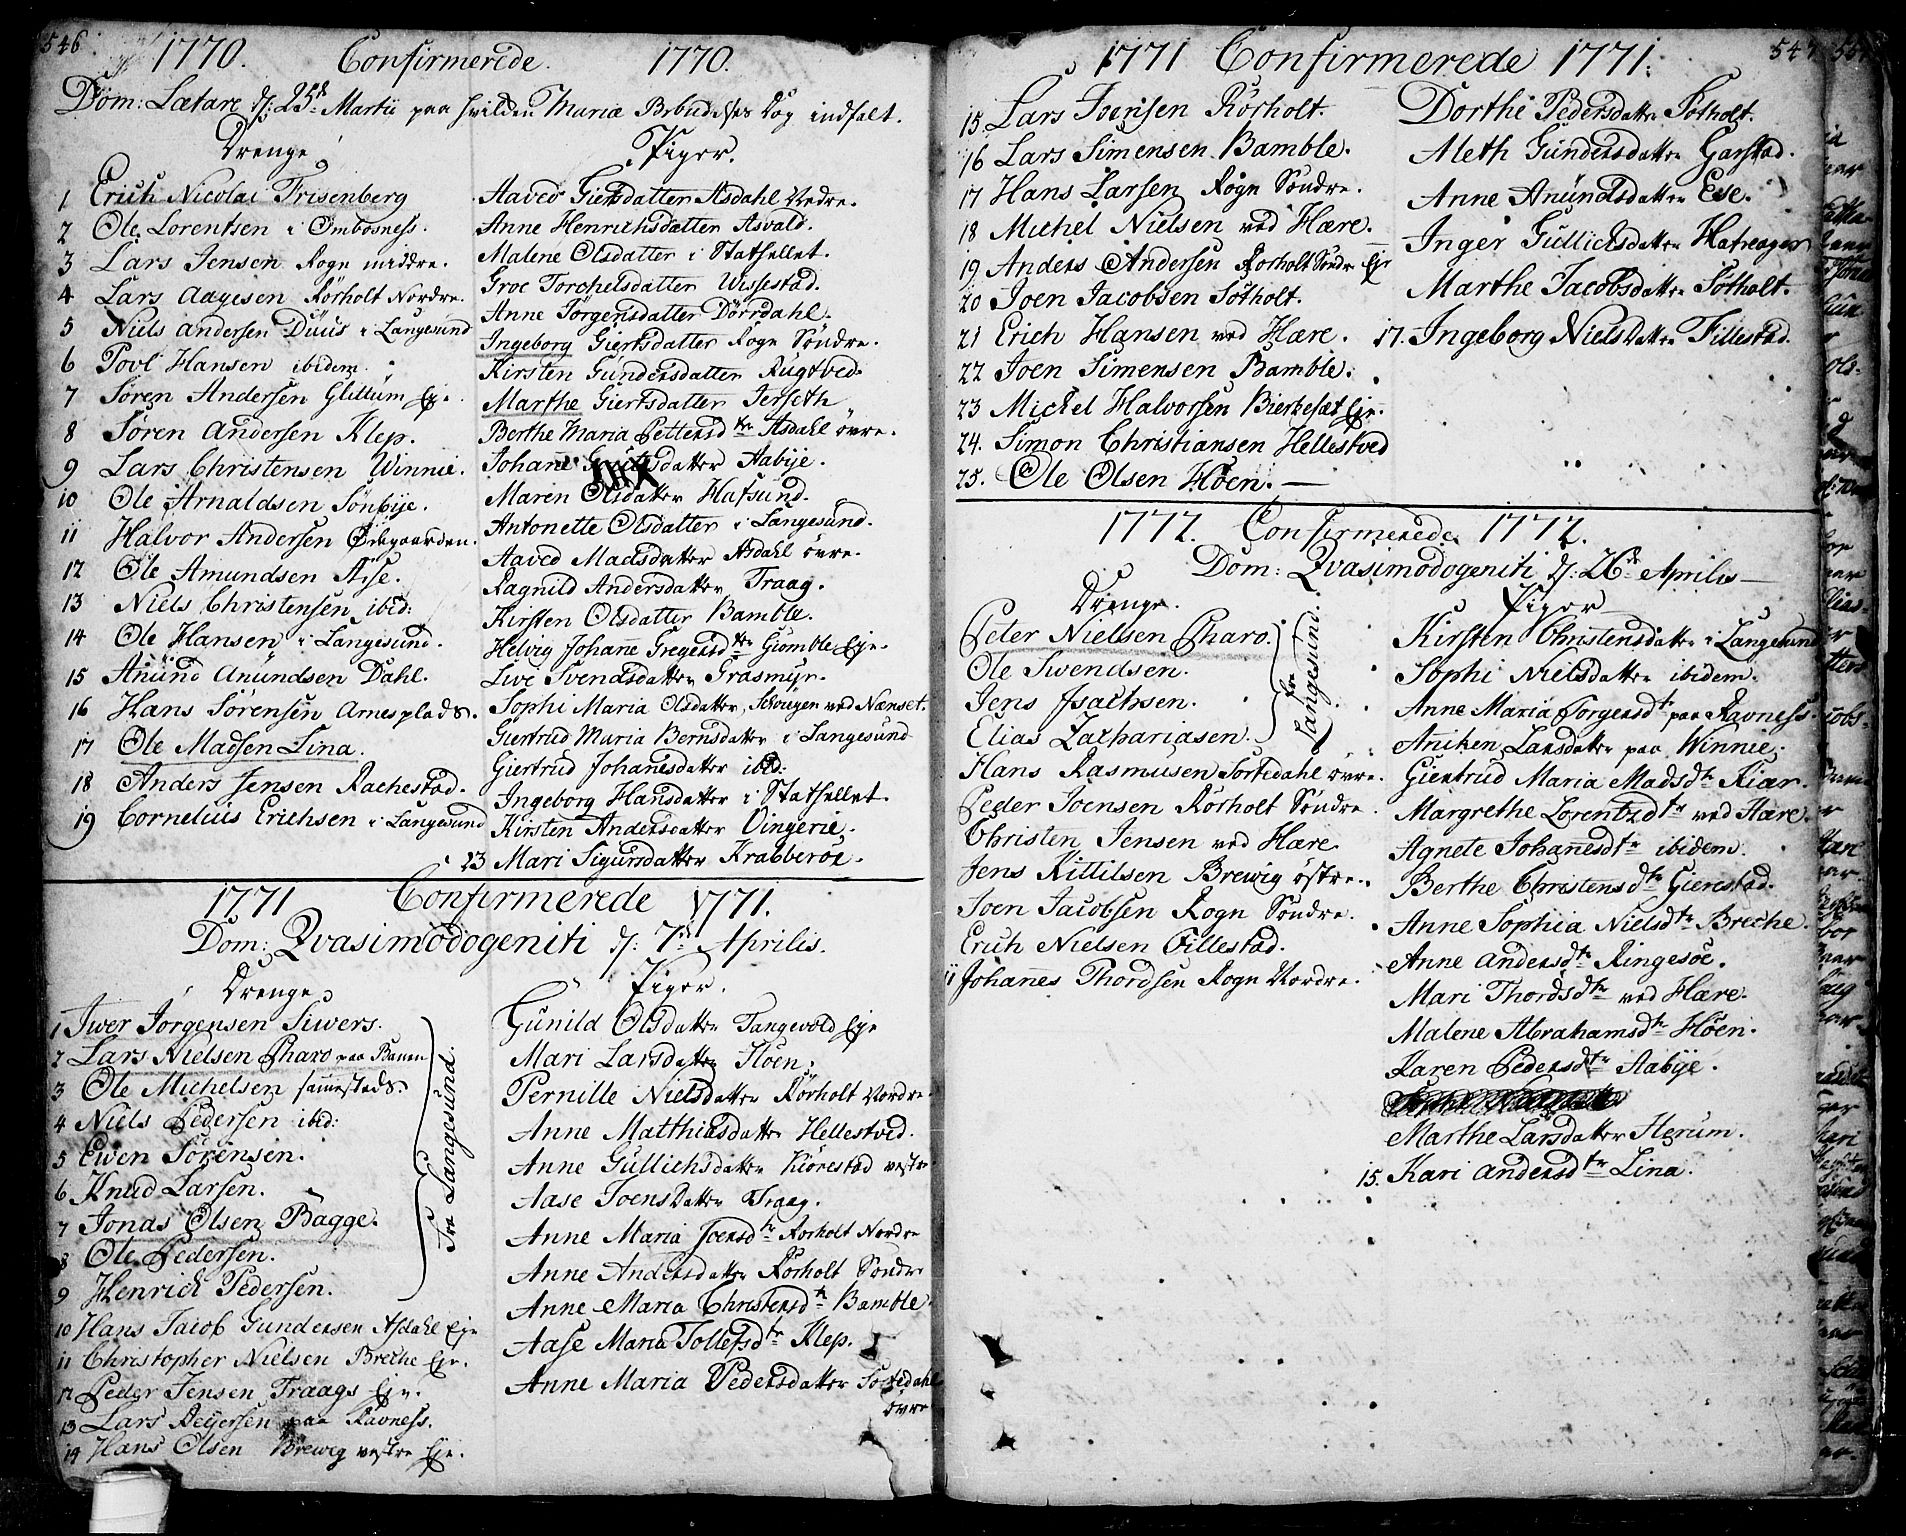 546
1770. Confirmerede. 1770.
Dom: Lætare d: 25de Martii paa hvilken Mariæ Bebudelses Dag indfalt.
Drenge
1 Erich Nicolai Frisenberg
2 Ole Lorentsen i Ombosness.
3 Lars Jensen Rogn middre.
4 Lars Aagesen Rörholt Nordre.
5 Niels Andersen Duus i Langesund
6 Povl Hansen ibidem.
7 Sören Andersen Glittum Eje.
8 Sören Andersen Klep.
9 Lars Christensen Winnie.
10 Ole Arnaldsen Sönbije.
11 Halvor Andersen Ödegaarden.
12 Ole Amundsen Aise.
13 Niels Christensen ibid:
14 Ole Hansen i Langesund.
15 Anund Anundsen Dahl.
16 Hans Sörensen Arnesplads.
17 Ole Madsen Lina.
18 Anders Jensen Rachestad.
19 Cornelius Erichsen i Langesund
Piger.
Aaved Giertsdatter Asdahl Nedre.
Anne Henrichsdatter Asvald.
Malene Olsdatter i Stathellet.
Groe Torchelsdatter Wissestad.
Anne Jörgensdatter Dörrdahl.
Ingeborg Giertsdatter Rogn Söndre.
Kirsten Gundersdatter Rugtved.
Marthe Giertsdatter Jerseth
Berthe Maria Pettersdtr Asdahl övre.
Johane datter Aabije.
Maren Olsdatter Hafsund.
Antonette Olsdatter i Langesund.
Aaved Madsdatter Asdahl övre.
Ragnild Andersdatter Traag.
Kirsten Olsdatter Bamble.
Helvig Johanne Gregersdtr Giomble Eje.
Live Svendsdatter Grasmyr.
Sophi Maria Olsdatter, Schougen ved Nænset.
Giertrud Maria Bernsdatter i Langesund
Giertrud Johanesdatter ibid:
Ingeborg Hansdatter i Stathellet.
Kirsten Andersdatter Vingerie.
23 Mari Sigursdatter Krabberöe.
1771 Confirmerede 1771.
Dom: Qvasimodogeniti d: 7de Aprilis.
Drenge
1 Iwer Jörgensen Siwers.
2 Lars Nielsen Pharo paa Banen
3 Ole Michelsen sammesteds.
4 Niels Pedersen ibid:
5 Ewen Sörensen.
6 Knud Larsen.
7 Jonas Olsen Bagge.
8 Ole Pedersen.
9 Henrich Pedersen.
Fra Langesund.
10 Hans Jacob Gundersen Asdahl Eje
11 Christopher Nielsen Breche Eje.
12 Peder Jensen Traags Eje.
13 Lars Reijersen paa Ravness.
14 Hans Olsen Brewig vestre Eje.
Piger.
Gunild Olsdatter Tangevold Eje
Mari Larsdatter Höen.
Pernille Nielsdatter Rörholt Nordre.
Anne Matthiasdatter Hellestved.
Anne Gullichsdatter Kiörestad vestre
Aase Joensdatter Traag.
Anne Maria Joensdtr Rorholt Nordre
Anne Andersdatter Rörholt Söndre
Anne Maria Christensdtr Bamble.
Aase Maria Tollefsdtr Klep.
Anne Maria Pedersdatter Sortedahl
övre
547
1771 Confirmerede 1771.
15 Lars Joensen Rörholt.
16 Lars Simensen Bamble.
17 Hans Larsen Rogn Söndre.
18 Michel Nielsen ved Hære.
19 Anders Andersen Rorholt Söndre Eje
20 Joen Jacobsen Sötholt.
21 Erich Hansen ved Hære.
22 Joen Simensen Bamble.
23 Michel Halvorsen Bierkesæt Eje.
24. Simon Christiansen Hellestved
25. Ole Olsen Höen.
Dorthe Pedersdatter Sötholt.
Aleth Gundersdatter Garstad.
Anne Anundsdatter Ese.
Inger Gullichsdatter Hafreager
Marthe Jacobsdatter Sötholt.
17. Ingeborg Nielsdatter Fillestad.
1772. Confirmerede 1772.
Dom: Qvasimodogeniti d: 26de Aprilis
Drenge.
Peter Nielsen Pharo.
Ole Swendsen.
Jens Isachsen.
Elias Zachariasen.
fra Langesund.
Hans Rasmusen Sortedahl övre.
Peder Joensen Rörholt Söndre
Christen Jensen ved Hære
Jens Kittilsen Brewig östre.
Joen Jacobsen Rogn Söndre.
Erich Nielsen Fillestad.
11 Johannes Thordsen Rogn Nordre.
Piger
Kirsten Christensdatter i Langesund
Sophi Nielsdatter ibidem.
Anne Maria Jorgensdtr paa Ravness.
Aniken Larsdatter paa Winnie.
Giertrud Maria Madsdtr Kiær.
Margrethe Lorentzdtr ved Hære.
Agnete Johannesdtr ibidem.
Berthe Christensdtr Gierestad.
Anne Sophia Nielsdtr Breche.
Anne Andersdtr Ringesöe.
Mari Thordsdtr ved Hære.
Malene Abrahamsdtr Höen.
Karen Pedersdtr Aabije.
Marthe Larsdatter Herum.
15. Kari Andersdtr Lina.